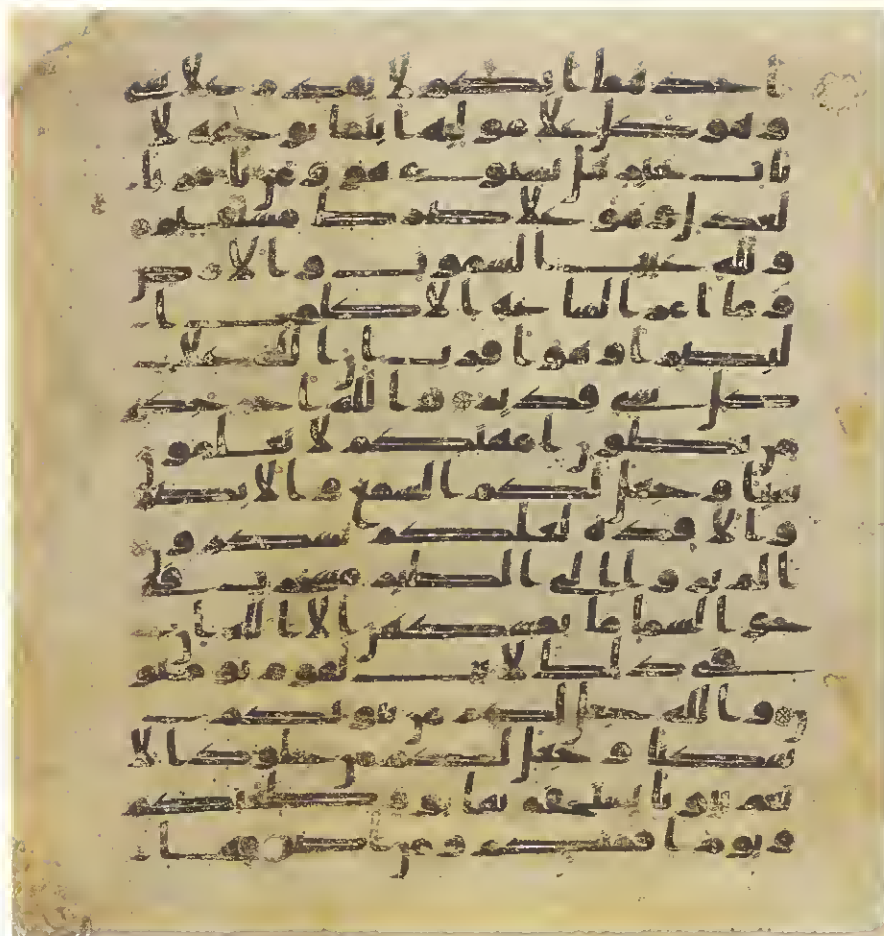 احدهما ابكم لا يقدر على شى
وهو كل على موليه اينما يوجهه لا
يات بخير هل يستوى هو ومن يامر با
لعدل وهو على صرط مستقيم
ولله غيب السموت والارض
وما امر الساعة الا كلمح ا
لبصر او هو اقرب ان الله على
كل شى قدير والله اخرجكم
من بطون امهتكم لا تعلمون
شيا وجعل لكم السمع والابصر
والافدة لعلكم تشكرون
الم يروا الى الطير مسخرت فى
جو السما ما يمسكهن الا الله ان
فى ذلك لايت لقوم يومنو
ن والله جعل لكم من بيوتكم
سكنا وجعل لكم من جلود الا
نعم بيوتا تستخفونها يوم ظعنكم
ويوم اقامتكم ومن اصوفها